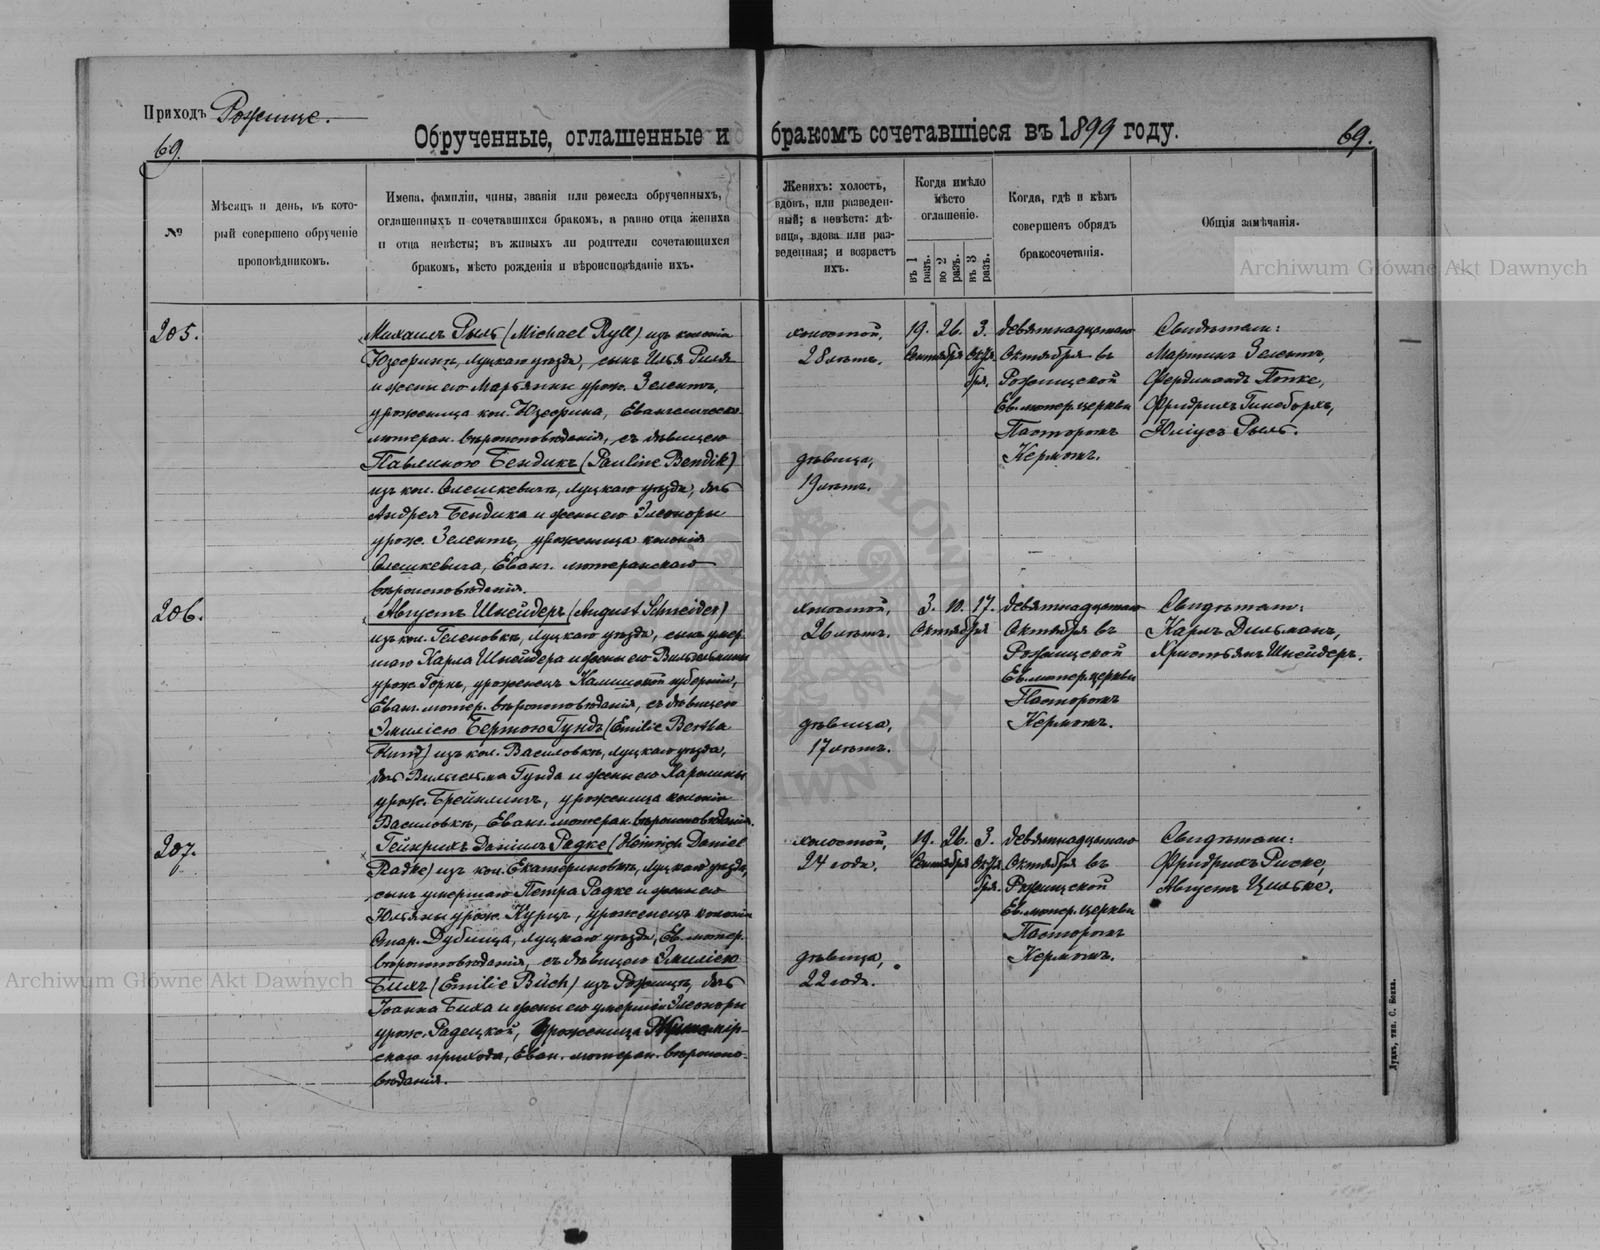 Приходъ Рожище.
69.
Обрученные, оглашенные и бракомъ сочетавшіеся въ 1899 году.
69.
№
Мѣсяцъ и день, въ кото-
рый совершено обрученіе
проповѣдникомъ.
Имена, фамиліи, чины, званія или ремесла обрученныхъ,
оглашенныхъ и сочетавшихся бракомъ, а равно отца жениха
и отца невѣсты; въ живыхъ ли родители сочетающихся
бракомъ, мѣсто рожденія и вѣроисповѣданіе ихъ.
Женихъ: холостъ,
вдовъ, или разведен-
ный; а невѣста: дѣ-
вица, вдова или раз-
веденная; и возрастъ
ихъ.
Когда имѣло
мѣсто
оглашеніе.
въ 1 разъ.
во 2 разъ.
въ 3 разъ.
Когда, гдѣ и кѣмъ
совершенъ обрядъ
бракосочетанія.
Общія замѣчанія.
205.
Михаилъ Рылъ (Michael Ryll) изъ колоніи
Юзефинъ, Луцкаго уѣзда, сынъ Ильи Риля
и жены его Марьянны урож. Зелентъ,
уроженица кол. Юзефина, Евангелическо-
лютеран. вѣроисповѣданія, съ дѣвицею
Павлиною Бендикъ (Pauline Bendik)
изъ кол. Олешкевичъ, Луцкаго уѣзда, дочь
Андрея Бендика и жены его Элеоноры
урож. Зелентъ, уроженица колоніи
Олешкевича, Еванг. лютеранскаго
вѣроисповѣданія.
холостой,
28 лѣтъ.
дѣвица,
19 лѣтъ.
19. 26. 3.
Сентября Октя-
бря.
девятнадцатаго
Октября въ
Рожищской
Ев. лютер. церкви
Пасторомъ
Кермомъ.
Свидѣтели:
Мартинъ Зелентъ,
Фердинандъ Попке,
Фридрихъ Гинеборхъ,
Юліусъ Рылъ.
206.
Августъ Шнейдеръ (August Schneider)
изъ кол. Геленовкѣ, Луцкаго уѣзда, сынъ умер-
шаго Карла Шнейдера и жены его Вильгельмины
урож. Горнъ, уроженецъ Калишской губерніи,
Еванг. лютер. вѣроисповѣданія, съ дѣвицею
Эмиліею Бертою Гундъ (Emilie Bertha
Hund) изъ кол. Василовкѣ, Луцкаго уѣзда,
дочь Вильгельма Гунда и жены его Каролины
урож. Брейнлингъ, уроженица колоніи
Василовкѣ, Еванг. лютеран. вѣроисповѣданія.
холостой,
26 лѣтъ.
дѣвица,
17 лѣтъ.
3. 10. 17.
Октября
девятнадцатаго
Октября въ
Рожищской
Ев. лютер. церкви
Пасторомъ
Кермомъ.
Свидѣтели:
Карлъ Дильманъ,
Христьянъ Шнейдеръ.
207.
Гейнрихъ Даніилъ Радке (Heinrich Daniel
Radke) изъ кол. Екатериновкѣ, Луцкаго уѣзда,
сынъ умершаго Петра Радке и жены его
Юльяны урож. Курцъ, уроженецъ колоніи
Стар. Дубища, Луцкаго уѣзда, Ев. лютер.
вѣроисповѣданія, съ дѣвицею Эмиліею
Бихъ (Emilie Büch) изъ Рожищъ, дочь
Іоанна Биха и жены его умершей Элеоноры
урож. Радецкой, уроженица Житомір-
скаго прихода, Еван. лютеран. вѣроиспо-
вѣданія.
холостой,
24 года.
дѣвица,
22 года.
19. 26. 3.
Сентября Октя-
бря.
девятнадцатаго
Октября въ
Рожищской
Ев. лютер. церкви
Пасторомъ
Кермомъ.
Свидѣтели:
Фридрихъ Риске,
Августъ Цильке.
Луцкъ, тип. С. Бокка.
Archiwum Główne Akt Dawnych
Archiwum Główne Akt Dawnych